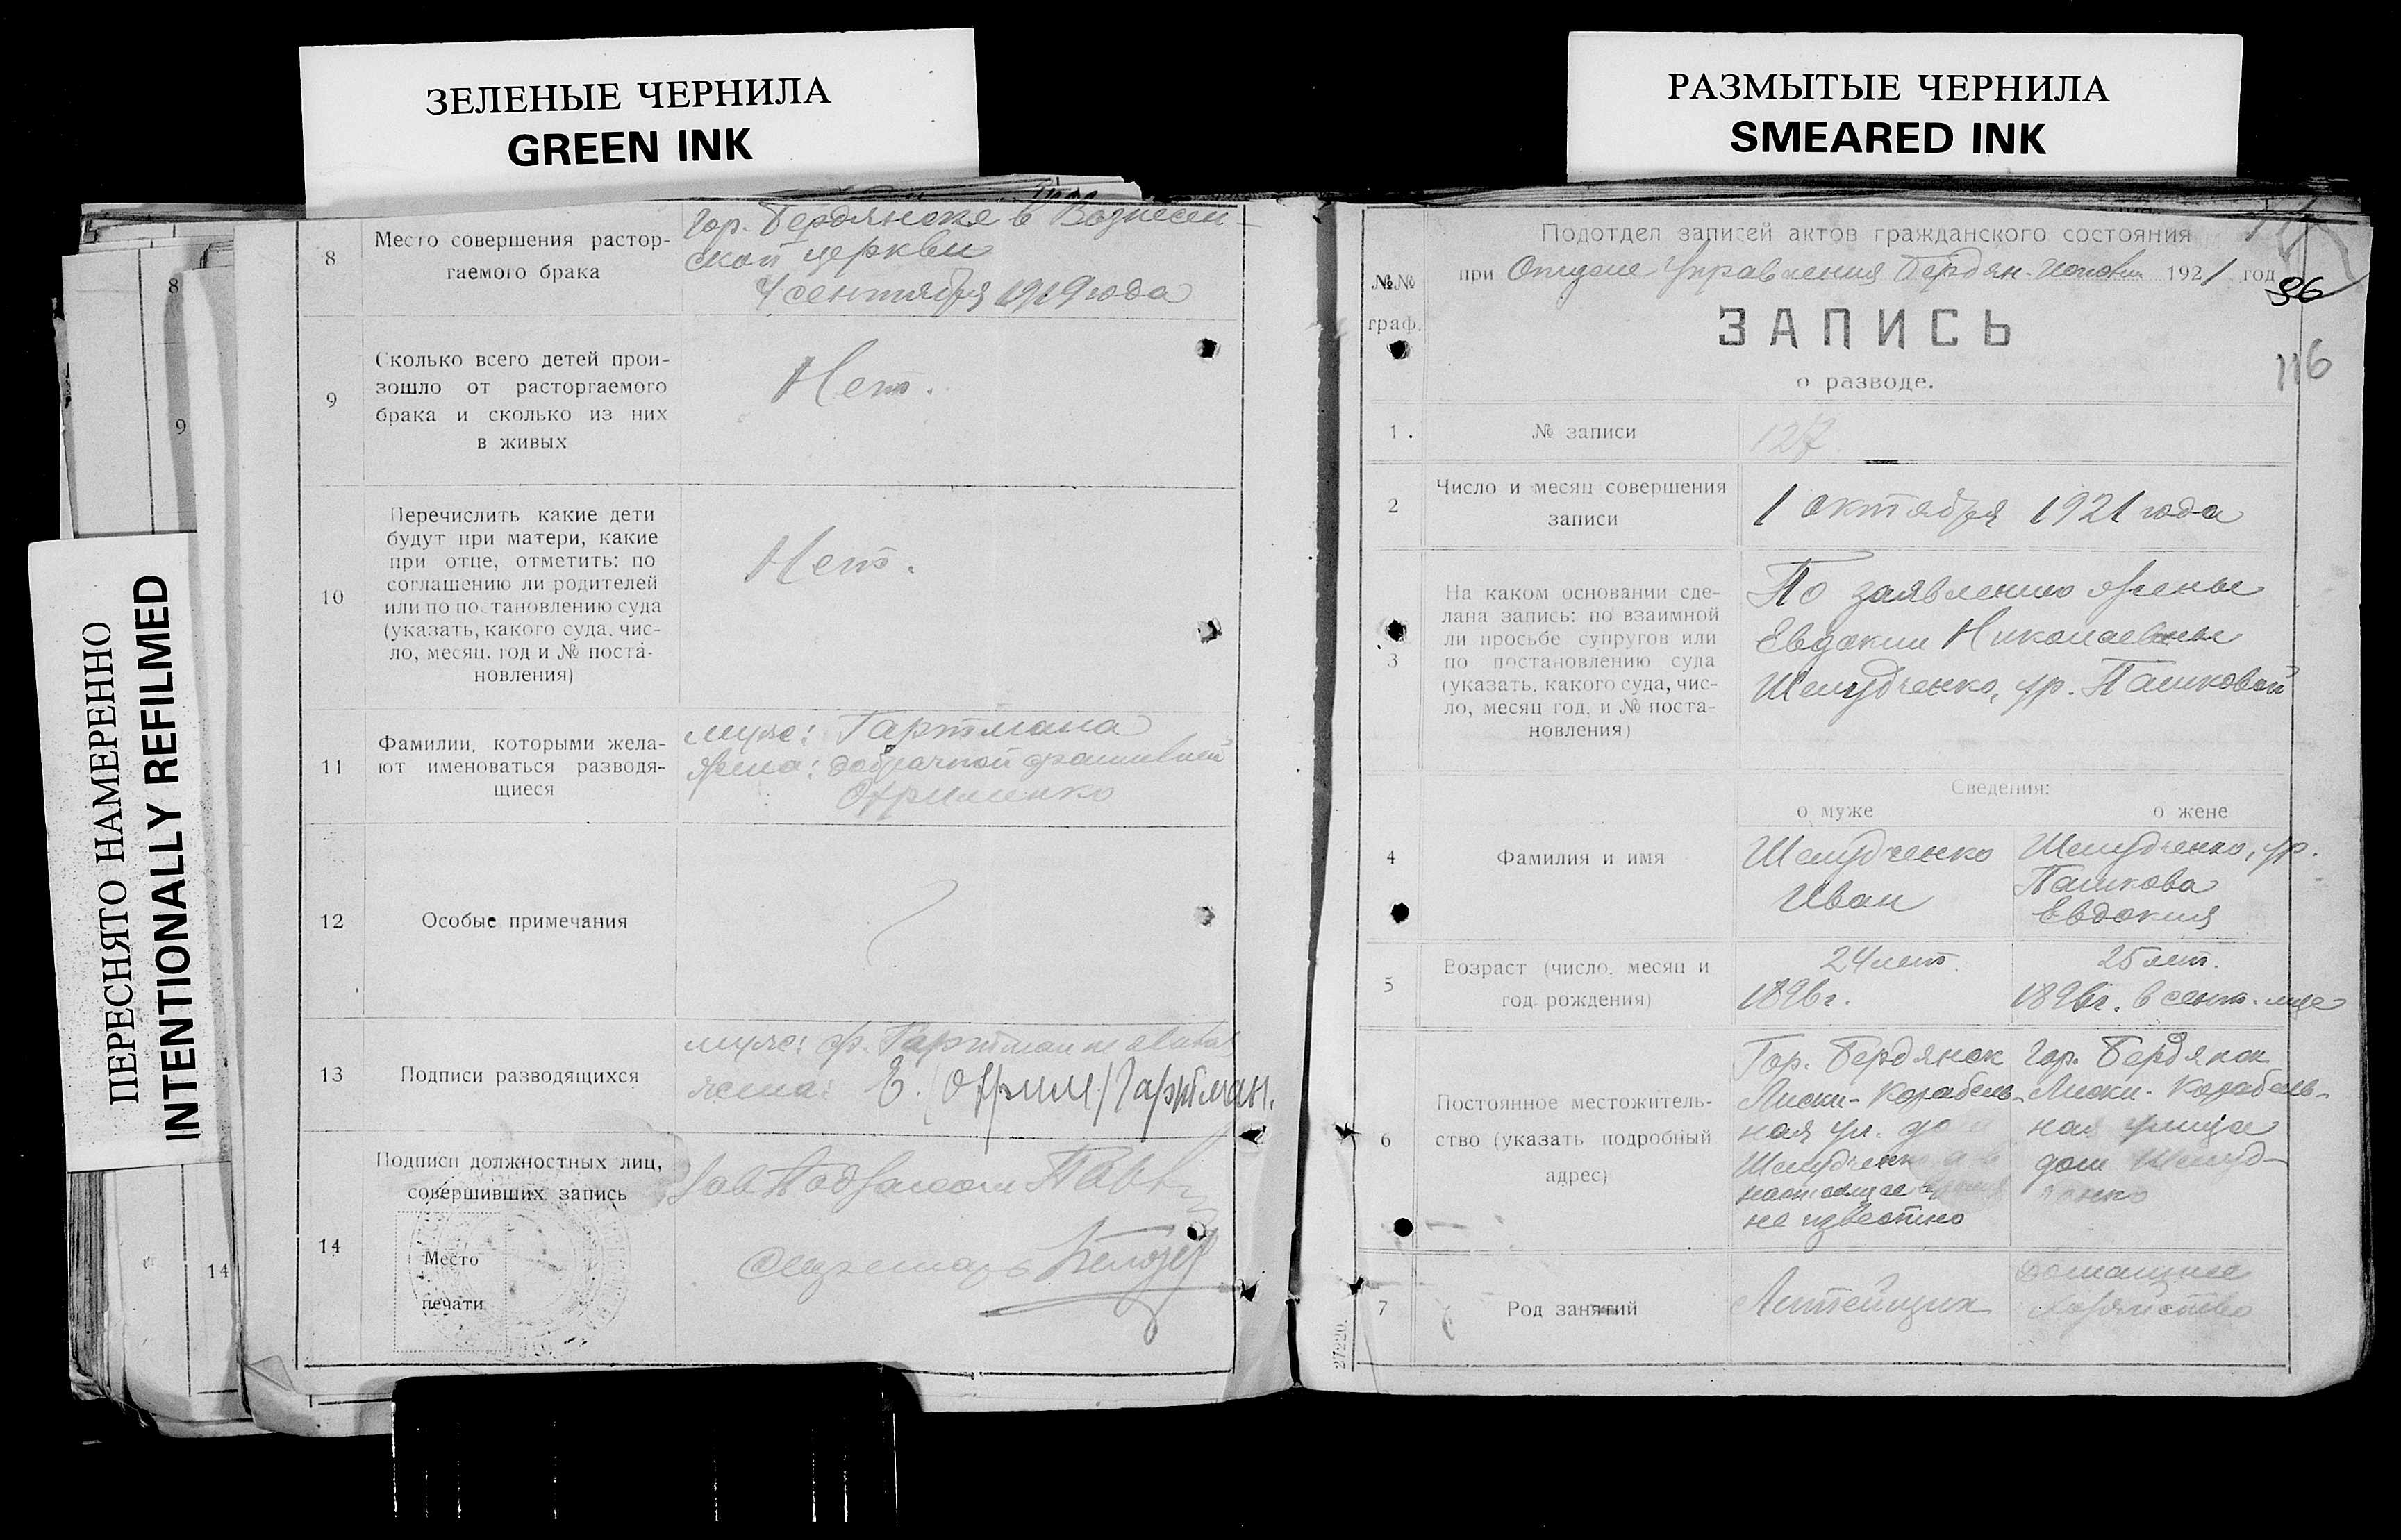 ЗЕЛЕНЫЕ ЧЕРНИЛА
GREEN INK
РАЗМЫТЫЕ ЧЕРНИЛА
SMEARED INK
ПЕРЕСНЯТО НАМЕРЕННО
INTENTIONALLY REFILMED
8
9
14
8
Место совершения растор-
гаемого брака
гор. Бердянске в Вознесен-
ской церкви
4 сентября 1919 года
9
Сколько всего детей прои-
зошло от расторгаемого
брака и сколько из них
в живых
Нет.
10
Перечислить какие дети
будут при матери, какие
при отце, отметить: по
соглашению ли родителей
или по постановлению суда
(указать, какого суда, чис-
ло, месяц, год и № поста-
новления)
Нет.
11
Фамилии, которыми жела-
ют именоваться разводя-
щиеся
муж: Гартмана
жена: добрачной фамилией
Охрименко
12
Особые примечания
13
Подписи разводящихся
муж: гр. Гартман не
жена: Е. (Охрим) Гартман.
14
Подписи должностных лиц,
совершивших запись
Место
печати
Зав
Секретарь
Подотдел записей актов гражданского состояния
при Отделе Управления Бердян. 1921 год
96
116
№№
граф.
ЗАПИСЬ
о разводе.
1.
№ записи
127
2
Число и месяц совершения
записи
1 октября 1921 года
3
На каком основании сде-
лана запись: по взаимной
ли просьбе супругов или
по постановлению суда
(указать, какого суда, чис-
ло, месяц год, и № поста-
новления)
По заявлению жены
Евдокии Николаевны
Шелудченко, ур. Пашковой
Сведения:
о муже
о жене
4
Фамилия и имя
Шелудченко
Иван
Шелудченко, ур.
Пашкова
Евдокия
5
Возраст (число, месяц и
год рождения)
24 лет.
1896г.
25 лет.
1896г. в сент. м-це
6
Постоянное местожитель-
ство (указать подробный
адрес)
Гор. Бердянск
Лиски-Корабель-
ная ул. дом
Шелудченко а в
настоящее время
не известно
Гор. Бердянск
Лиски-Корабель-
ная улица
дом Шелуд-
ченко
7
Род занятий
Литейщик
домашнее
хозяйство
27220.